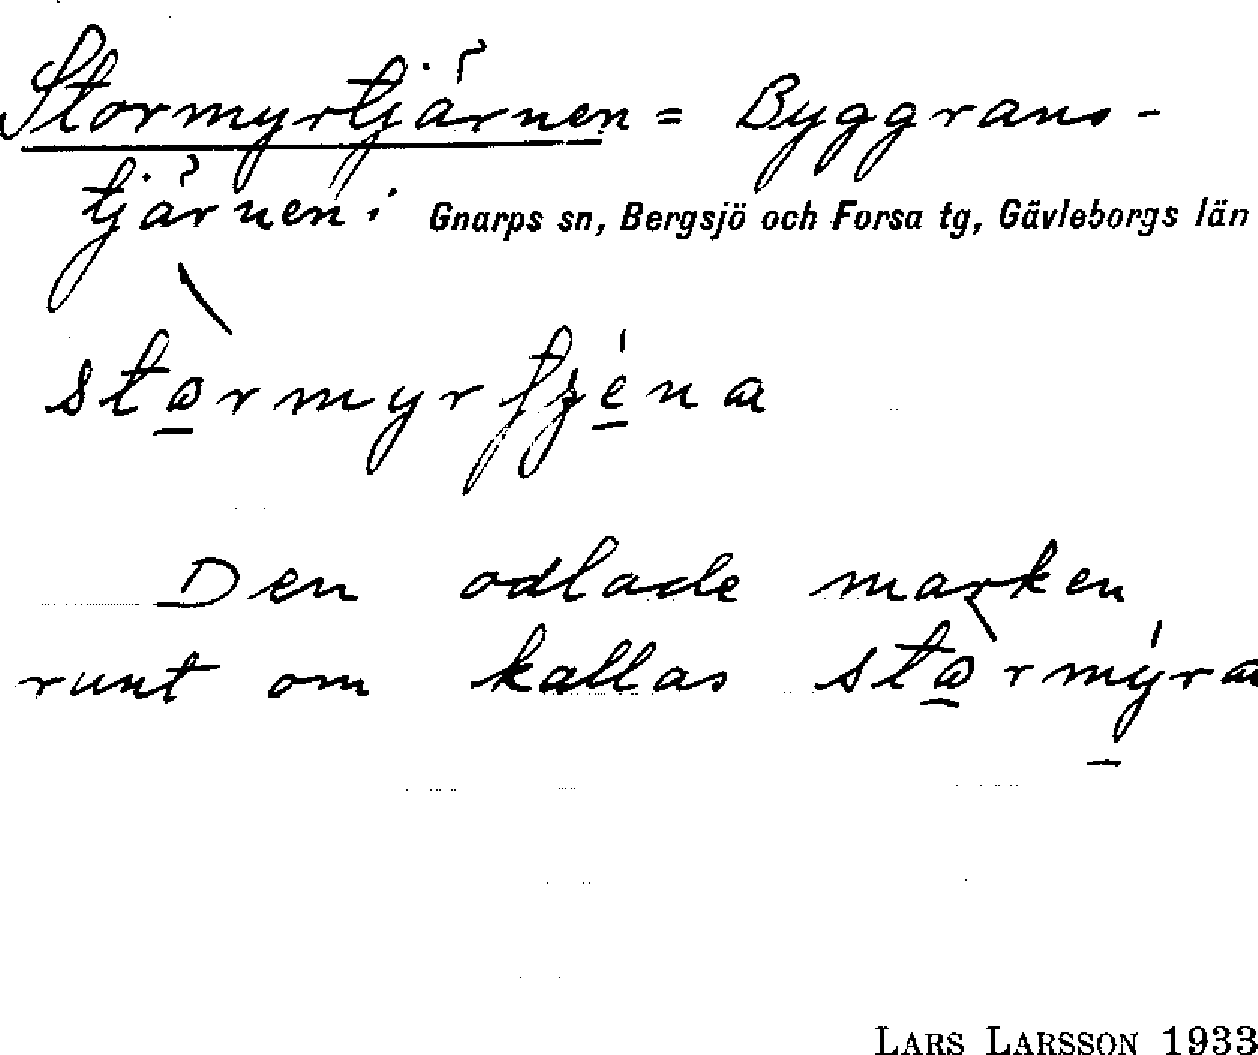 Stormyrtjärnen = Byggrans-
tjärnen i Gnarps sn, Bergsjö och Forsa tg, Gävleborgs län
stòrmyrfjéna
Den odlade marken
runt om kallas stòrmýra
LARS LARSSON 1933